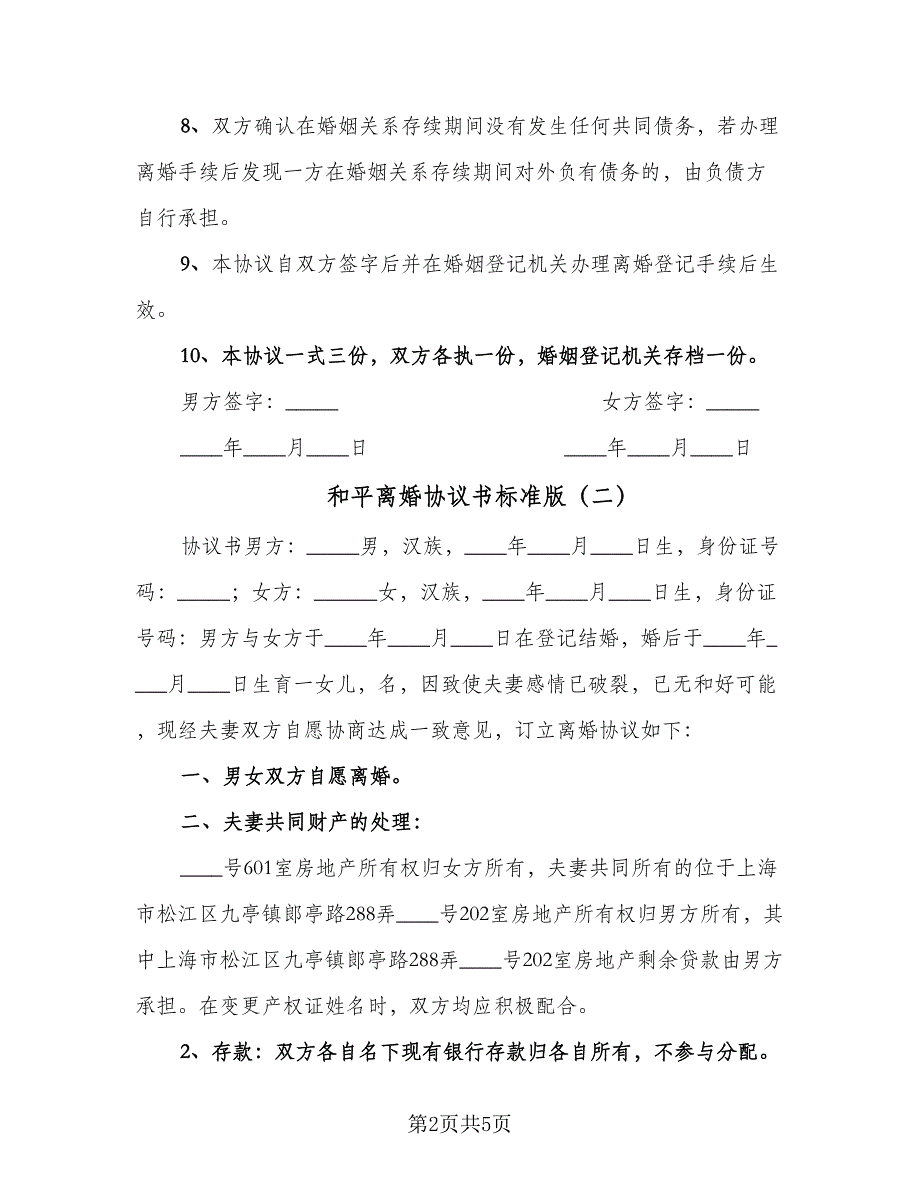 8、双方确认在婚姻关系存续期间没有发生任何共同债务，若办理
离婚手续后发现一方在婚姻关系存续期间对外负有债务的，由负债方
自行承担。
9、本协议自双方签字后并在婚姻登记机关办理离婚登记手续后生
效。
10、本协议一式三份，双方各执一份，婚姻登记机关存档一份。
男方签字：_____ 女方签字：_____
____年____月____日 ____年____月____日
和平离婚协议书标准版（二）
协议书男方：_____男，汉族，____年____月____日生，身份证号
码：_____；女方：______女，汉族，____年____月____日生，身份证
号码：男方与女方于____年____月____日在登记结婚，婚后于____年_
___月____日生育一女儿，名，因致使夫妻感情已破裂，已无和好可能
，现经夫妻双方自愿协商达成一致意见，订立离婚协议如下：
一、男女双方自愿离婚。
二、夫妻共同财产的处理：
____号601室房地产所有权归女方所有，夫妻共同所有的位于上海
市松江区九亭镇郎亭路288弄____号202室房地产所有权归男方所有，其
中上海市松江区九亭镇郎亭路288弄____号202室房地产剩余贷款由男方
承担。在变更产权证姓名时，双方均应积极配合。
2、存款：双方各自名下现有银行存款归各自所有，不参与分配。
第2页共5页